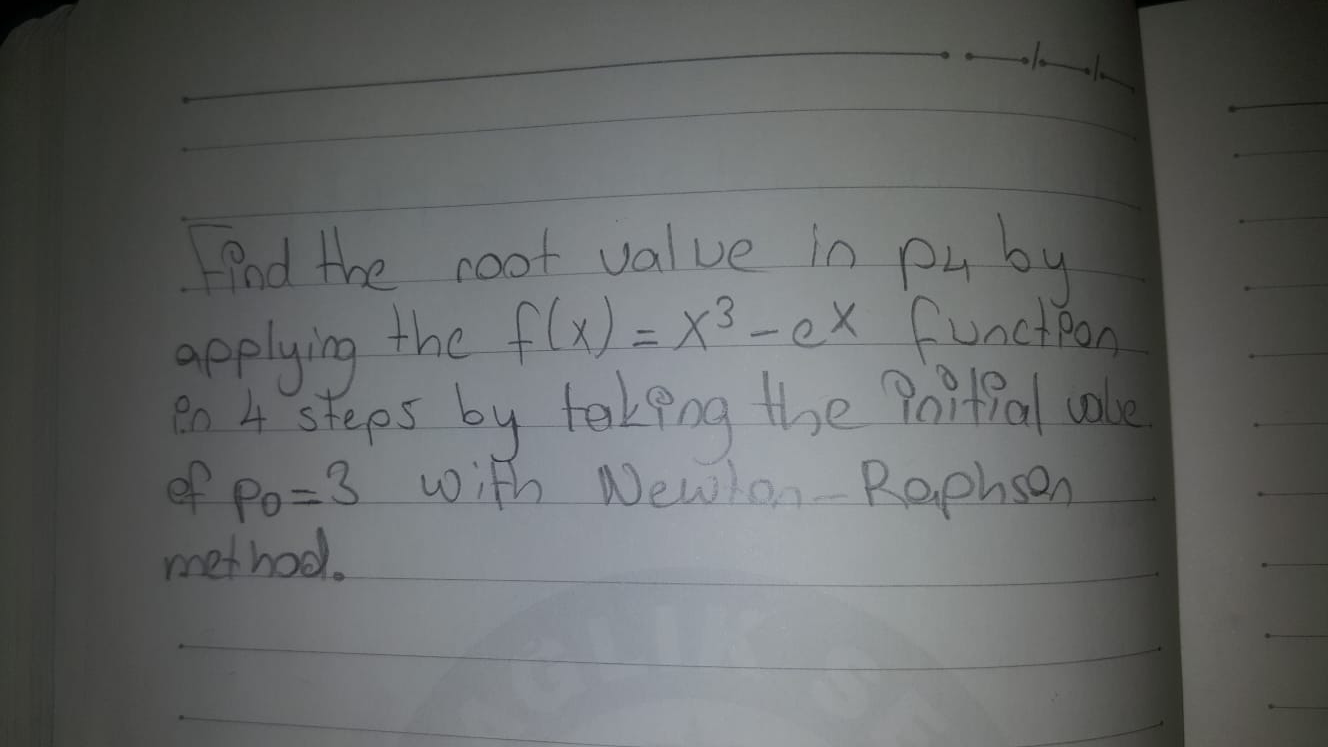 Find the root value in p4 by
applying the f(x) = x³ - eˣ function
in 4 steps by taking the initial value
of p0 = 3 with Newton-Raphson
method.